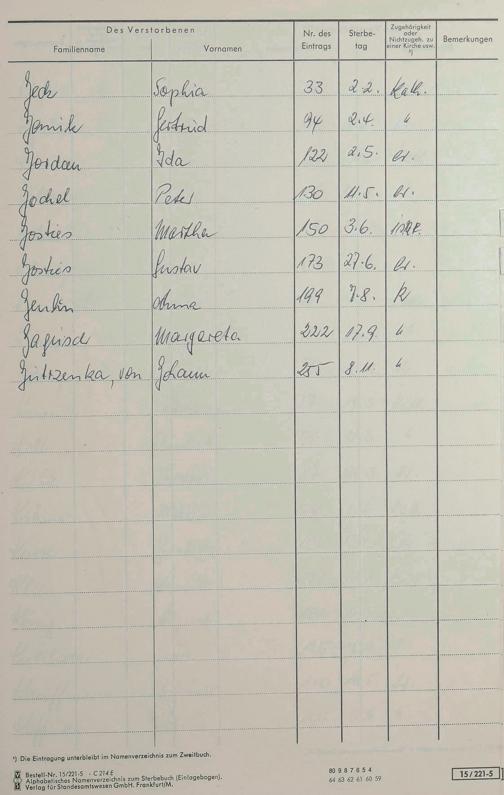 Des Verstorbenen
Familienname Vornamen Nr. des Eintrags Sterbe- tag Zugehörigkeit oder Nichtzugeh. zu einer Kirche usw. ¹) Bemerkungen
Jeck Sophia 33 2.2. kath.
Gertrud 94 2.4. "
Jordan Ida 122 2.5. ev.
Jochel Peter 130 11.5. ev.
Josties Martha 150 3.6.
Josties Gustav 173 27.6. ev.
Anna 199 7.8. k
Jagusch Margareta 222 17.9. "
Jutrzenka, von Johann 255 8.11. "
¹) Die Eintragung unterbleibt im Namenverzeichnis zum Zweitbuch.
Bestell-Nr. 15/221-5 - C 214 E
Alphabetisches Namenverzeichnis zum Sterbebuch (Einlagebogen).
Verlag für Standesamtswesen GmbH. Frankfurt/M.
80 9 8 7 6 5 4
64 63 62 61 60 59
15/221-5